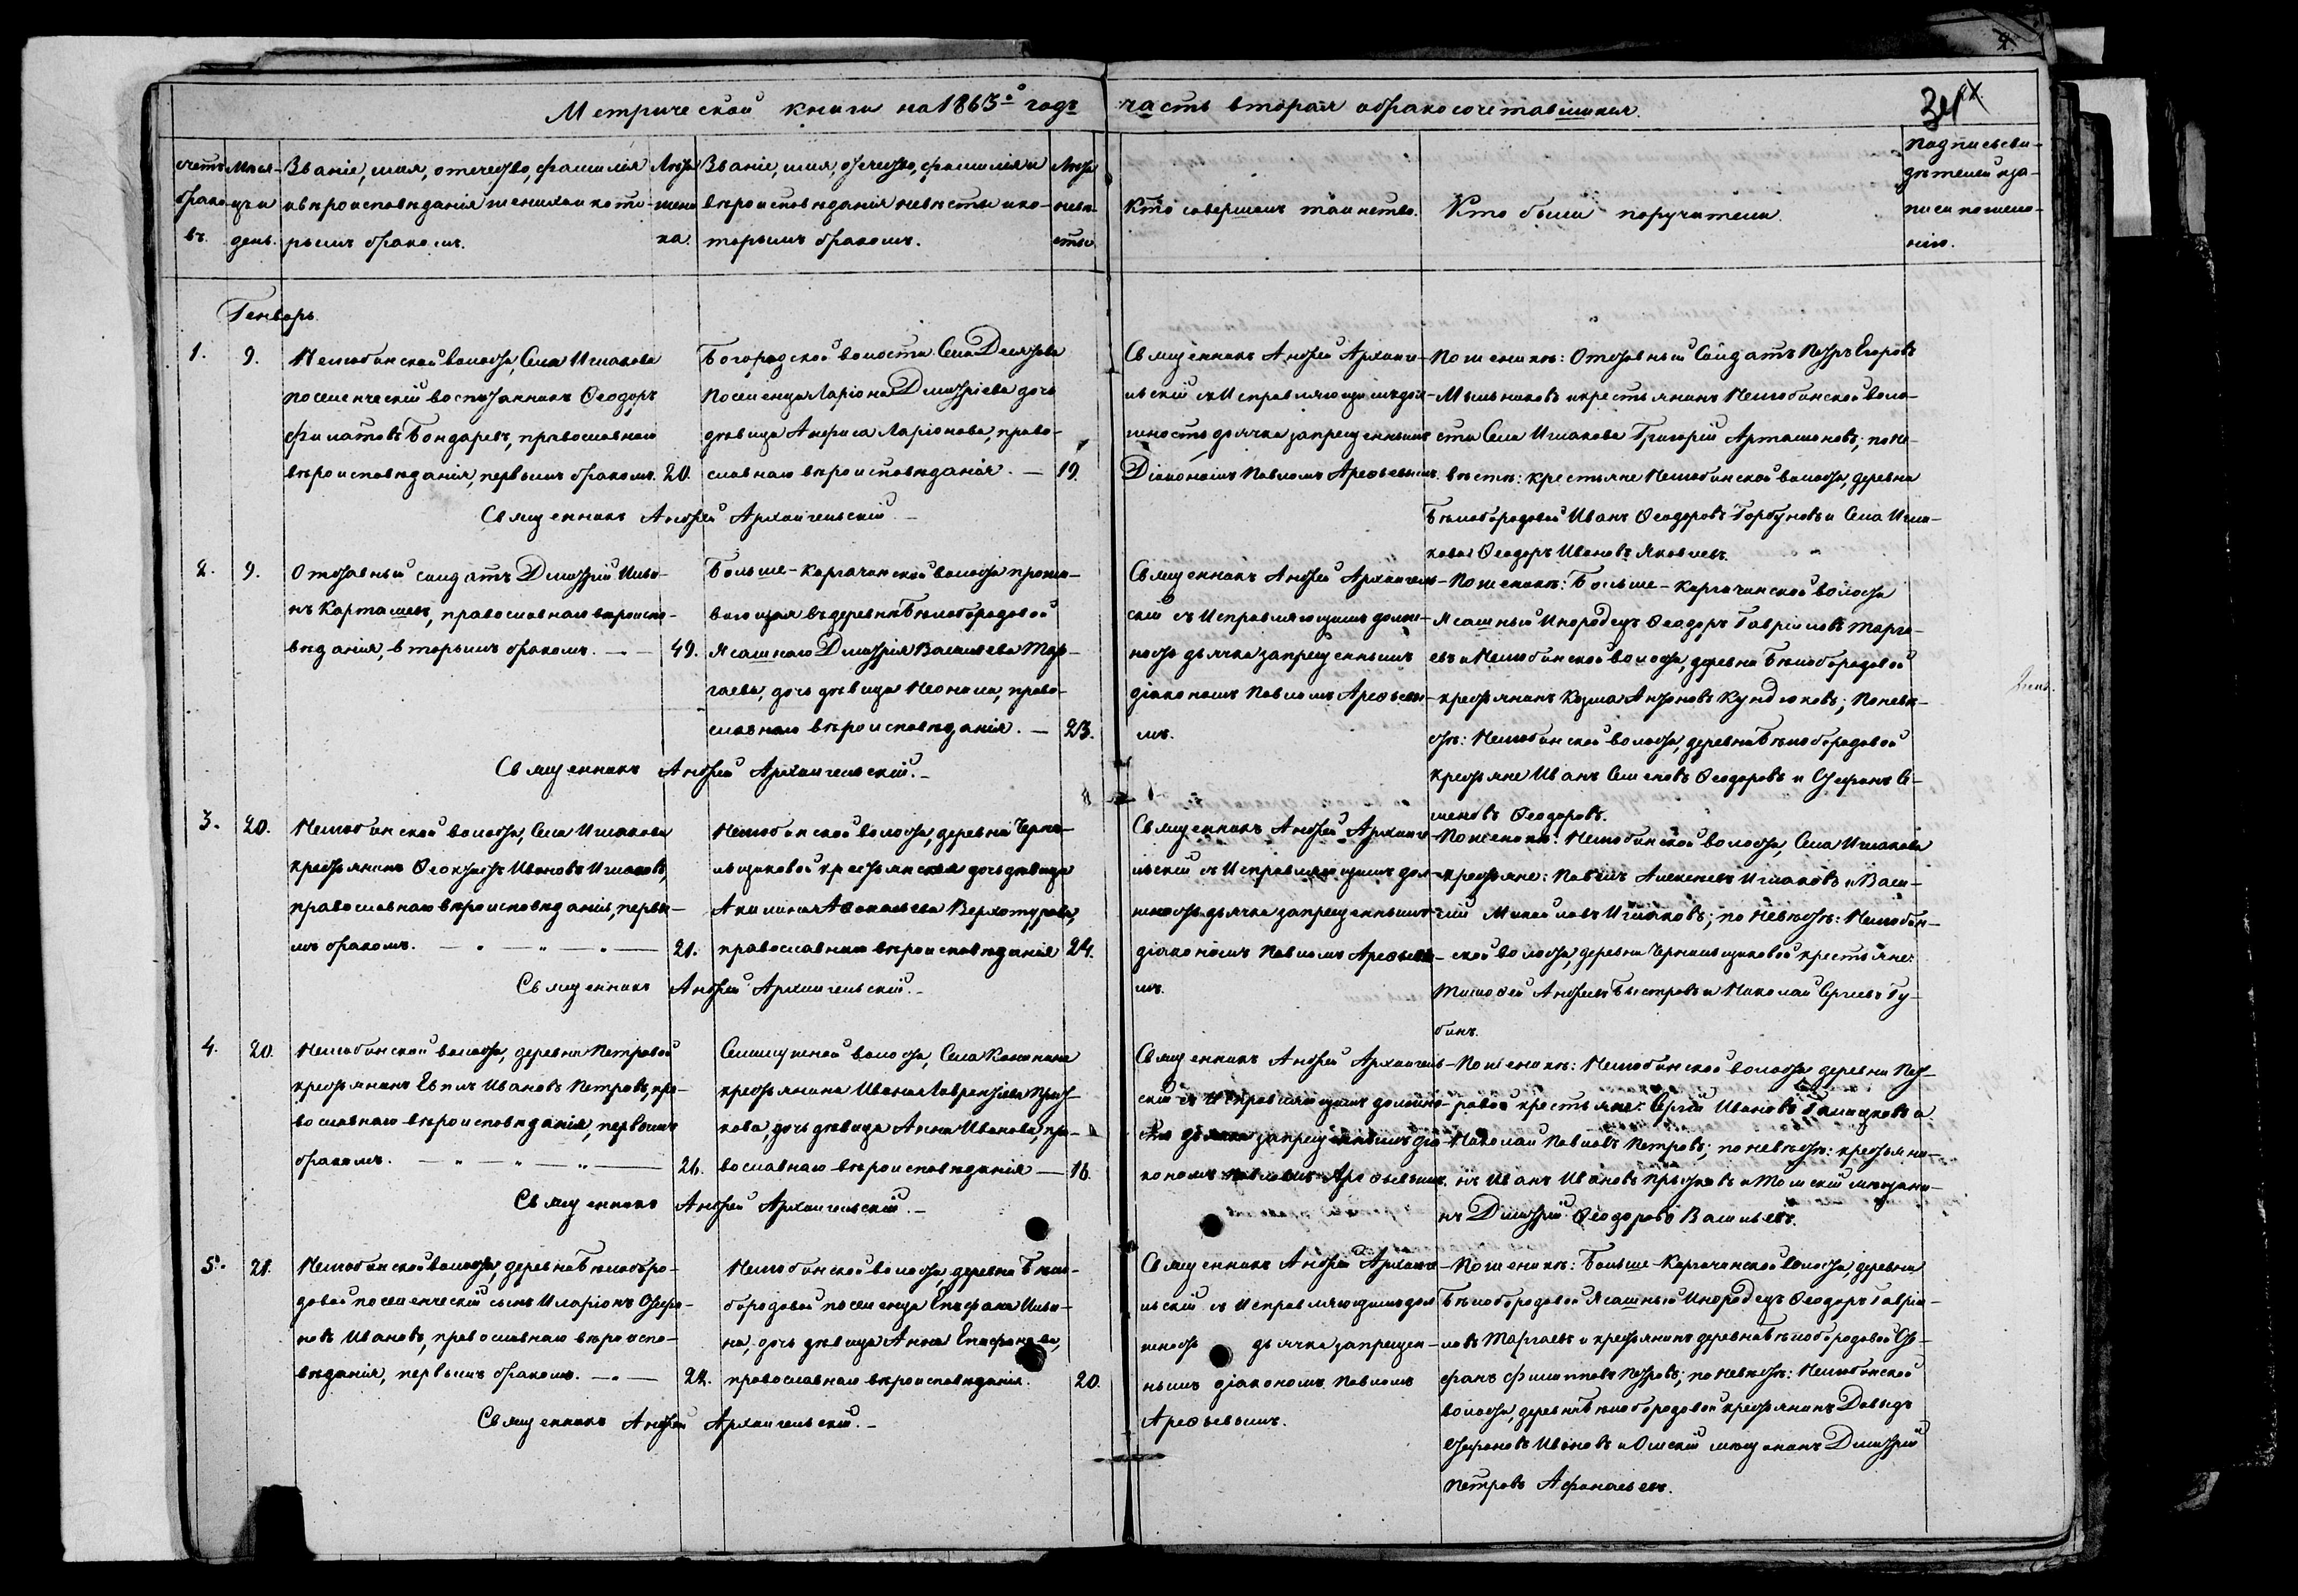 Метрической книги на 1865й годъ часть вторая о бракосочетавшихся.
Счетъ браковъ.
Мѣсяцъ и день.
Званіе, имя, отчество, фамилія
и вѣроисповѣданія жениха и кото-
рымъ бракомъ.
Лѣта
жени
ха.
Званіе, имя, отчество, фамилія и
вѣроисповѣданія невѣсты и ко-
торымъ бракомъ.
Лѣта
невѣ
сты.
Кто совершалъ таинство.
Кто были поручители.
Подпись сви-
дѣтелей за-
писи по жела-
нію.
Генварь.
1.
9.
Нелюбинской волости, Села Иглакова
поселенческій воспитанникъ Ѳеодоръ
Филатовъ Бондаревъ, православнаго
вѣроисповѣданія, первымъ бракомъ.
20.
Богородской волости Села
поселенца Ларіона Димитріева дочь
дѣвица Анфиса Ларіонова, право-
славнаго вѣроисповѣданія. —
19.
Священникъ Андрей Арханге-
льскій съ Исправляющимъ дол-
жность дьячка запрещеннымъ
Діакономъ Павломъ Арефьевымъ.
По женихѣ: Отставный Солдатъ Петръ Егоровъ
Мыльниковъ и крестьянинъ Нелюбинской воло-
сти Села Иглакова Григорій Артамоновъ; по не-
вѣстѣ: крестьяне Нелюбинской волости, деревни
Бѣлобородовой Иванъ Ѳеодоровъ Горбуновъ и Села Игла-
кова Ѳеодоръ Ивановъ Яковлевъ.
Священникъ Андрей Архангельскій. —
2.
9.
Отставный солдатъ Димитрій Ильи-
нъ Карташевъ, православнаго вѣроиспо-
вѣданія, вторымъ бракомъ. — —
49.
Больше-Коргачинской волости прожи-
вающая въ деревнѣ Бѣлобородовой
Ясашнаго Димитрія Васильева Тар-
гаева, дочь дѣвица Неонила, право-
славнаго вѣроисповѣданія. —
23.
Священникъ Андрей Архангель-
скій съ Исправляющимъ долж-
ность дьячка запрещеннымъ
діакономъ Павломъ Арефьевы-
мъ.
По женихѣ: Больше-Коргачинской волости
Ясашный Инородецъ Ѳеодоръ Гавріловъ Тарга-
евъ и Нелюбинской волости, деревни Бѣлобородовой
крестьянинъ Козма Антоновъ Кундюковъ; по невѣ-
стѣ: Нелюбинской волости, деревни Бѣлобородовой
крестьяне Иванъ Семеновъ Ѳеодоровъ и Стефанъ Се-
меновъ Ѳеодоровъ.
Священникъ Андрей Архангельскій. —
3.
20.
Нелюбинской волости, Села Иглакова
крестьянинъ Ѳеоктистъ Ивановъ Иглаковъ,
православнаго вѣроисповѣданія, первы-
мъ бракомъ. — " — " — " —
21.
Нелюбинской волости, деревни Черни-
льщиковой крестьянская дочь дѣвица
Акилина Аѳонасьева Верхотурова,
православнаго вѣроисповѣданія
24.
Священникъ Андрей Арханге-
льскій съ Исправляющимъ дол-
жность дьячка запрещеннымъ
діакономъ Павломъ Арефьевы-
мъ.
По женихѣ: Нелюбинской волости, Села Иглакова
крестьяне: Павелъ Алексеевъ Иглаковъ и Васи-
лій Михайловъ Иглаковъ; по невѣстѣ: Нелюбин-
ской волости, деревни Чернильщиковой крестьяне:
Тимофей Андреевъ Быстровъ и Николай Сергеевъ Гу-
бинъ.
Священникъ Андрей Архангельскій. —
4.
20.
Нелюбинской волости, деревни Петровой
крестьянинъ Евплъ Ивановъ Петровъ, пра-
вославнаго вѣроисповѣданія, первымъ
бракомъ. — " — " — " —
26.
Семилужной волости, Села Конинина
крестьянина Ивана Лаврентіева
дочь дѣвица Анна Иванова, пра-
вославнаго вѣроисповѣданія —
16.
Священникъ Андрей Архангель-
скій съ Исправляющимъ должно-
сть дьячка запрещеннымъ діа-
кономъ Павломъ Арефьевымъ.
По женихѣ: Нелюбинской волости деревни Пет-
ровой крестьяне: Сергій Ивановъ и
Николай Павловъ Петровъ; по невѣстѣ: крестьяни-
нъ Иванъ Ивановъ и Томскій мѣщани-
нъ Димитрій Ѳеодоровъ Васильевъ.
Священникъ Андрей Архангельскій. —
5.
21.
Нелюбинской волости, деревни Бѣлоборо-
довой поселенческій сынъ Иларіонъ Стефа-
новъ Ивановъ, православнаго вѣроиспо-
вѣданія, первымъ бракомъ. — " —
22.
Нелюбинской волости, деревни Бѣло-
бородовой поселенца Епифана Ильи-
на, дочь дѣвица Анна Епифанова,
православнаго вѣроисповѣданія.
20.
Священникъ Андрей Арханге-
льскій съ Исправляющимъ дол
жность дьячка запрещен-
нымъ діакономъ Павломъ
Арефьевымъ.
По женихѣ: Больше-Коргачинской волости, деревни
Бѣлобородовой Ясашный Инородецъ Ѳеодоръ Гаврі-
ловъ Таргаевъ и крестьянинъ деревни Бѣлобородовой Сте-
фанъ Филипповъ Петровъ; по невѣстѣ: Нелюбинской
волости, деревни Бѣлобородовой крестьянинъ Давыдъ
Стефановъ Ивановъ и Омскій мѣщанинъ Димитрій
Петровъ Афонасьевъ.
Священникъ Андрей Архангельскій. —